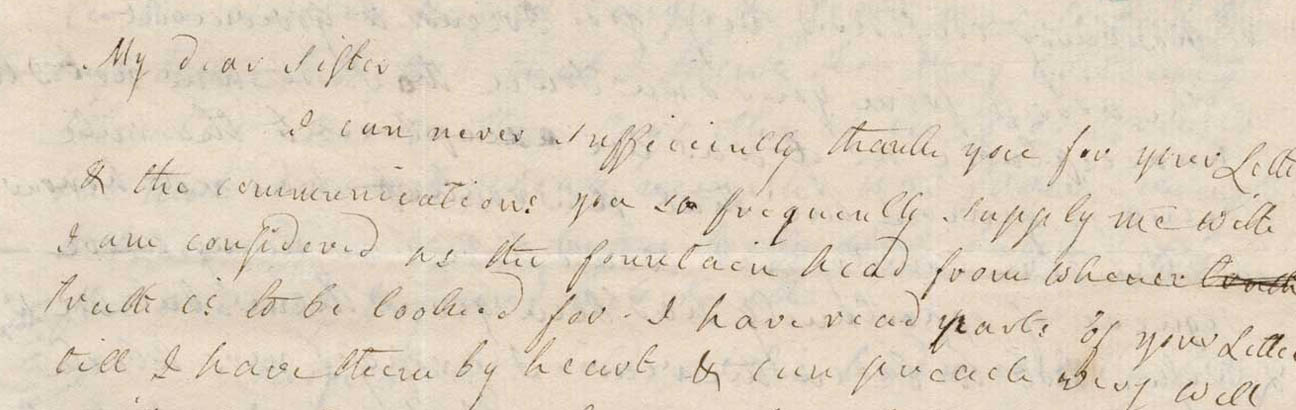 My dear Sister
I can never sufficiently thank you for your Lette
& the communications you so frequently supply me with
I am considered as the fountain head from whence
truth is to be looked for. I have read parts of your Lette
till I have them by heart & can preach very well